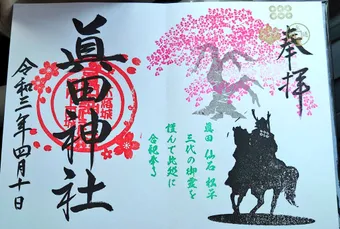 奉拝
真田 仙石 松平
三代の御霊を
慎んで此処に
合祀奉る
眞田神社
令和三年四月十日